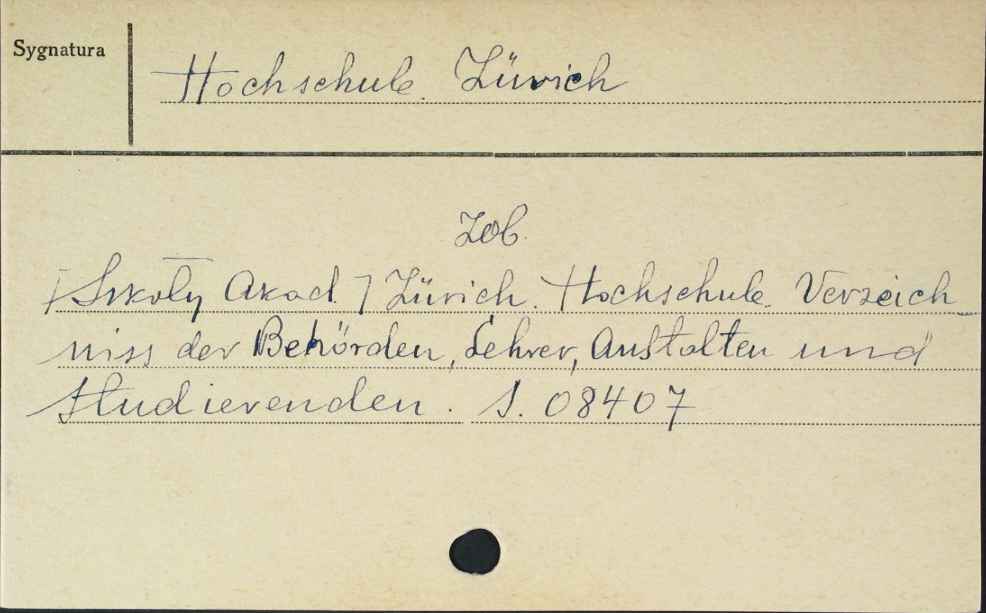 Sygnatura
Hochschule. Zürich
zob.
[Szkoły Akad.] Zürich. Hochschule. Verzeich-
niss der Behörden, Lehrer, Anstalten und
Studierenden. S. 08407